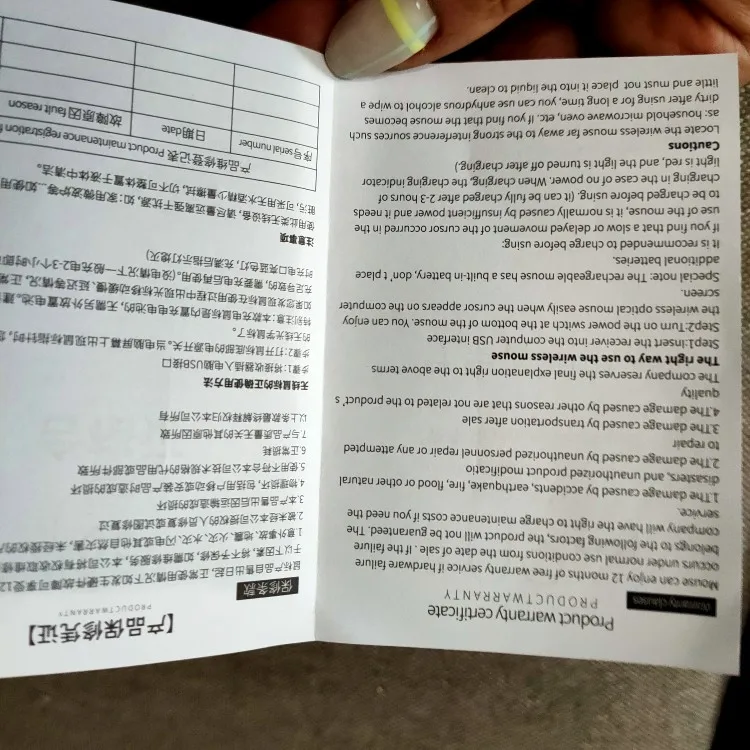 Product warranty certificate
PRODUCTWARRANTY
Warranty clauses
Mouse can enjoy 12 months of free warranty service if hardware failure
occurs under normal use conditions from the date of sale . if the failure
belongs to the following factors, the product will not be guaranteed. The
company will have the right to charge maintenance costs if you need the
service.
1.The damage caused by accidents, earthquake, fire, flood or other natural
disasters, and unauthorized product modificatio
2.The damage caused by unauthorized personnel repair or any attempted
to repair
3.The damage caused by transportation after sale
4.The damage caused by other reasons that are not related to the product's
quality
The company reserves the final explanation right to the above terms
The right way to use the wireless mouse
Step1:Insert the receiver into the computer USB interface
Step2:Turn on the power switch at the bottom of the mouse. You can enjoy
the wireless optical mouse easily when the cursor appears on the computer
screen.
Special note: The rechargeable mouse has a built-in battery, don't place
additional batteries.
It is recommended to charge before using:
If you find that a slow or delayed movement of the cursor occurred in the
use of the mouse, it is normally caused by insufficient power and it needs
to be charged before using. (it can be fully charged after 2-3 hours of
charging in the case of no power. When charging, the charging indicator
light is red, and the light is turned off after charging.)
Cautions
Locate the wireless mouse far away to the strong interference sources such
as: household microwave oven, etc. if you find that the mouse becomes
dirty after using for a long time, you can use anhydrous alcohol to wipe a
little and must not place it into the liquid to clean.
【产品保修凭证】
PRODUCTWARRANTY
保修条款
鼠标产品自售出日起, 正常使用情况下如发生硬件故障可享受12
于以下因素, 将不予保修, 如需维修服务, 本公司将有权收取维修
1.意外事故、地震、火灾、水灾、闪电或其他自然灾害, 未经授权的产
2.被未经本公司授权的人员修复或试图修复过
3.本产品售出后因运输造成的损坏
4.物理损坏, 包括用户移动或安装产品时造成的损坏
5.使用不符合本公司技术规格的代用品或部件所致
6.正常损耗
7.与产品质量无关的其他原因所致
以上条款最终解释权归本公司所有
无线鼠标的正确使用方法
步骤1: 将接收器插入电脑USB接口
步骤2: 打开鼠标底部的电源开关。当电脑屏幕上出现鼠标指针时,
的无线光学鼠标了。
特别注意: 本款充电鼠标是内置充电电池的, 无需另外放置电池。建
如果您发现鼠标在使用过程中出现光标移动缓慢、延迟等情况, 正常
充足导致的, 需要充电后再使用。(没电情况下一般充电2-3个小时即
时充电口亮蓝色灯, 充满后指示灯熄灭)
注意事项
使用此类无线设备, 请尽量远离强干扰源, 如: 家用微波炉等...如使用
脏污, 可采用无水酒精少量擦拭, 切不可整体置于液体中清洁。
产品维修登记表 Product maintenance registration
序号serial number
日期date
故障原因 fault reason